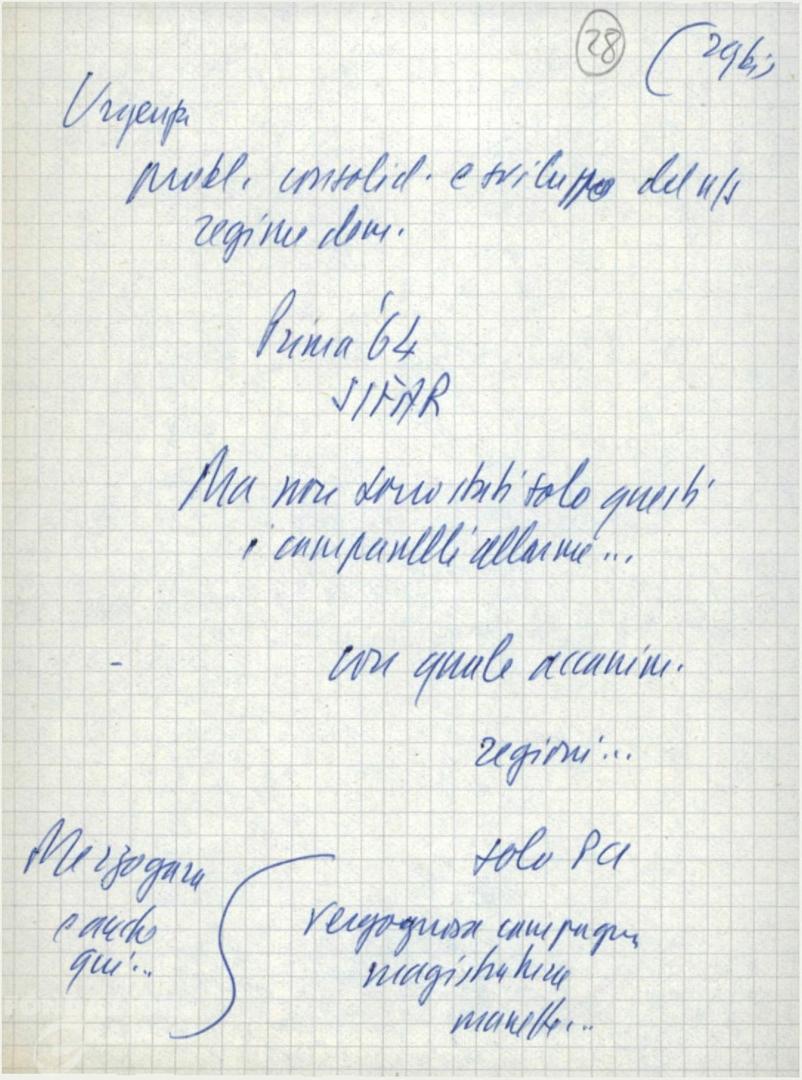 28 (29bis
Urgenza
probl. consolid. e sviluppo del n/s
regime dem.
Prima '64
SIFAR
Ma non sono stati solo questi
i campanelli allarme...
- con quale accanim.
regioni...
solo PCI
Merzagora
e anche
qui...
vergognosa campagna
magistratura